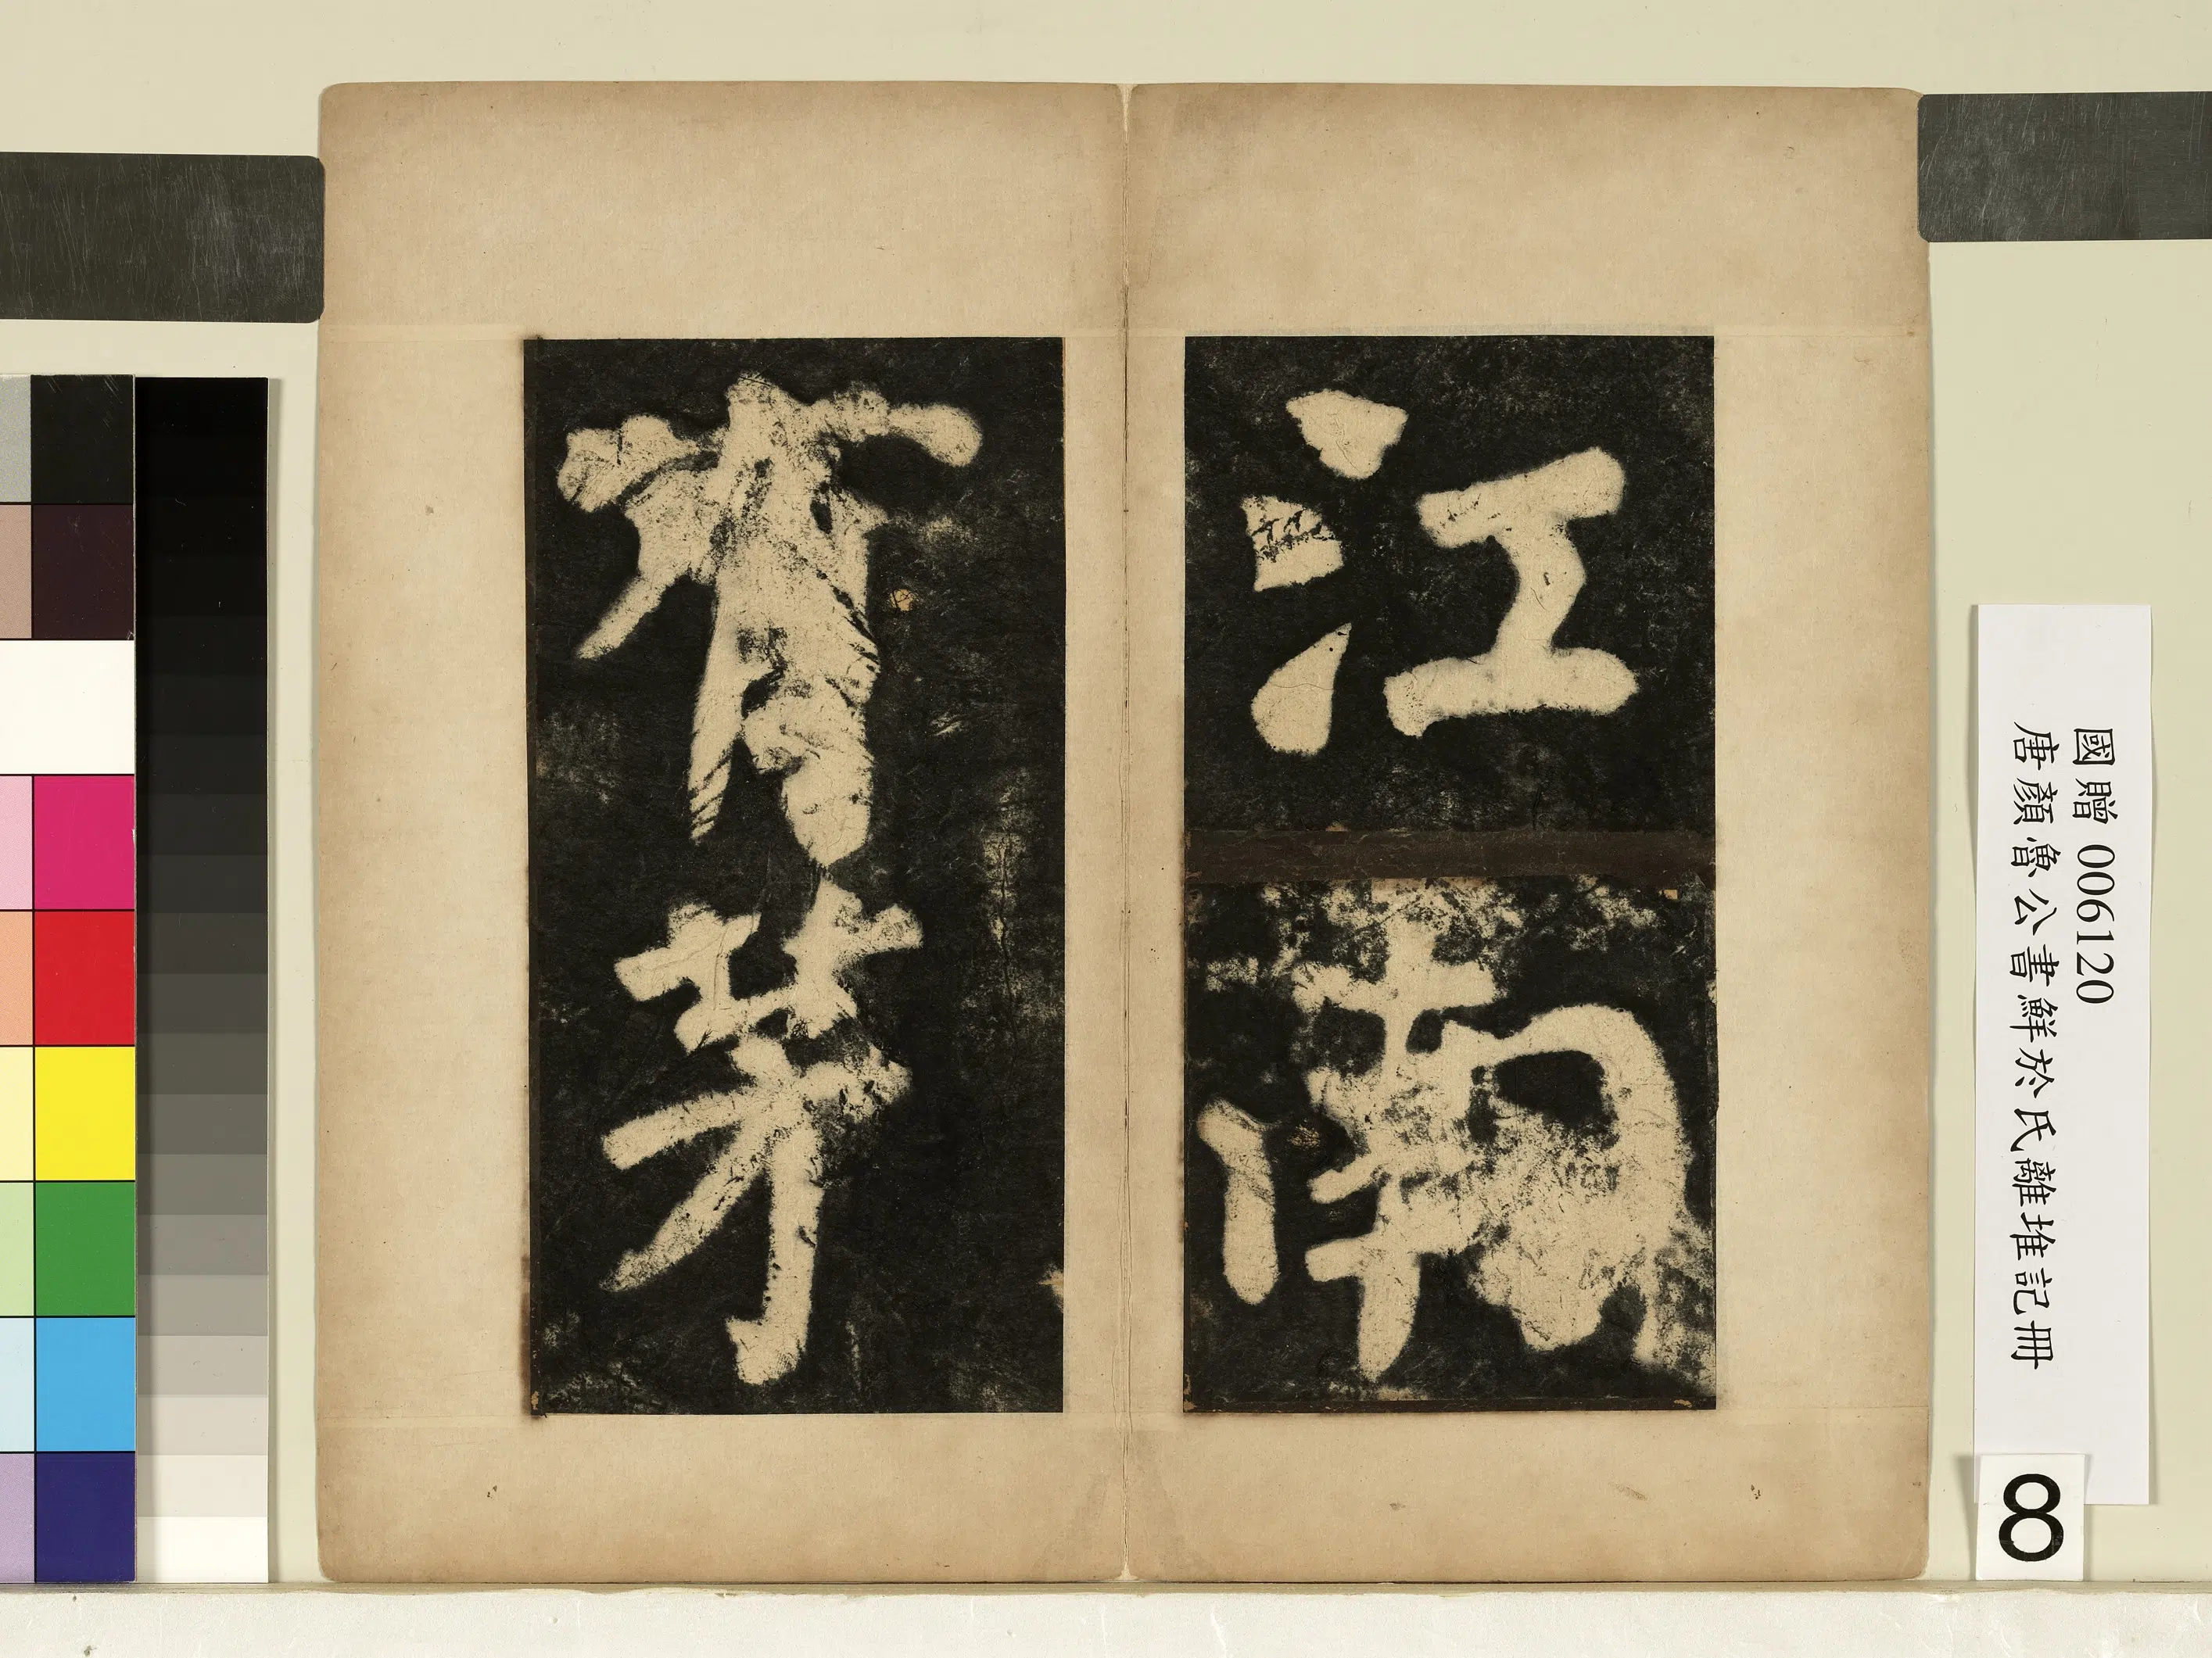 江南
有茅
國贈 006120
唐顏魯公書鮮於氏離堆記冊
8